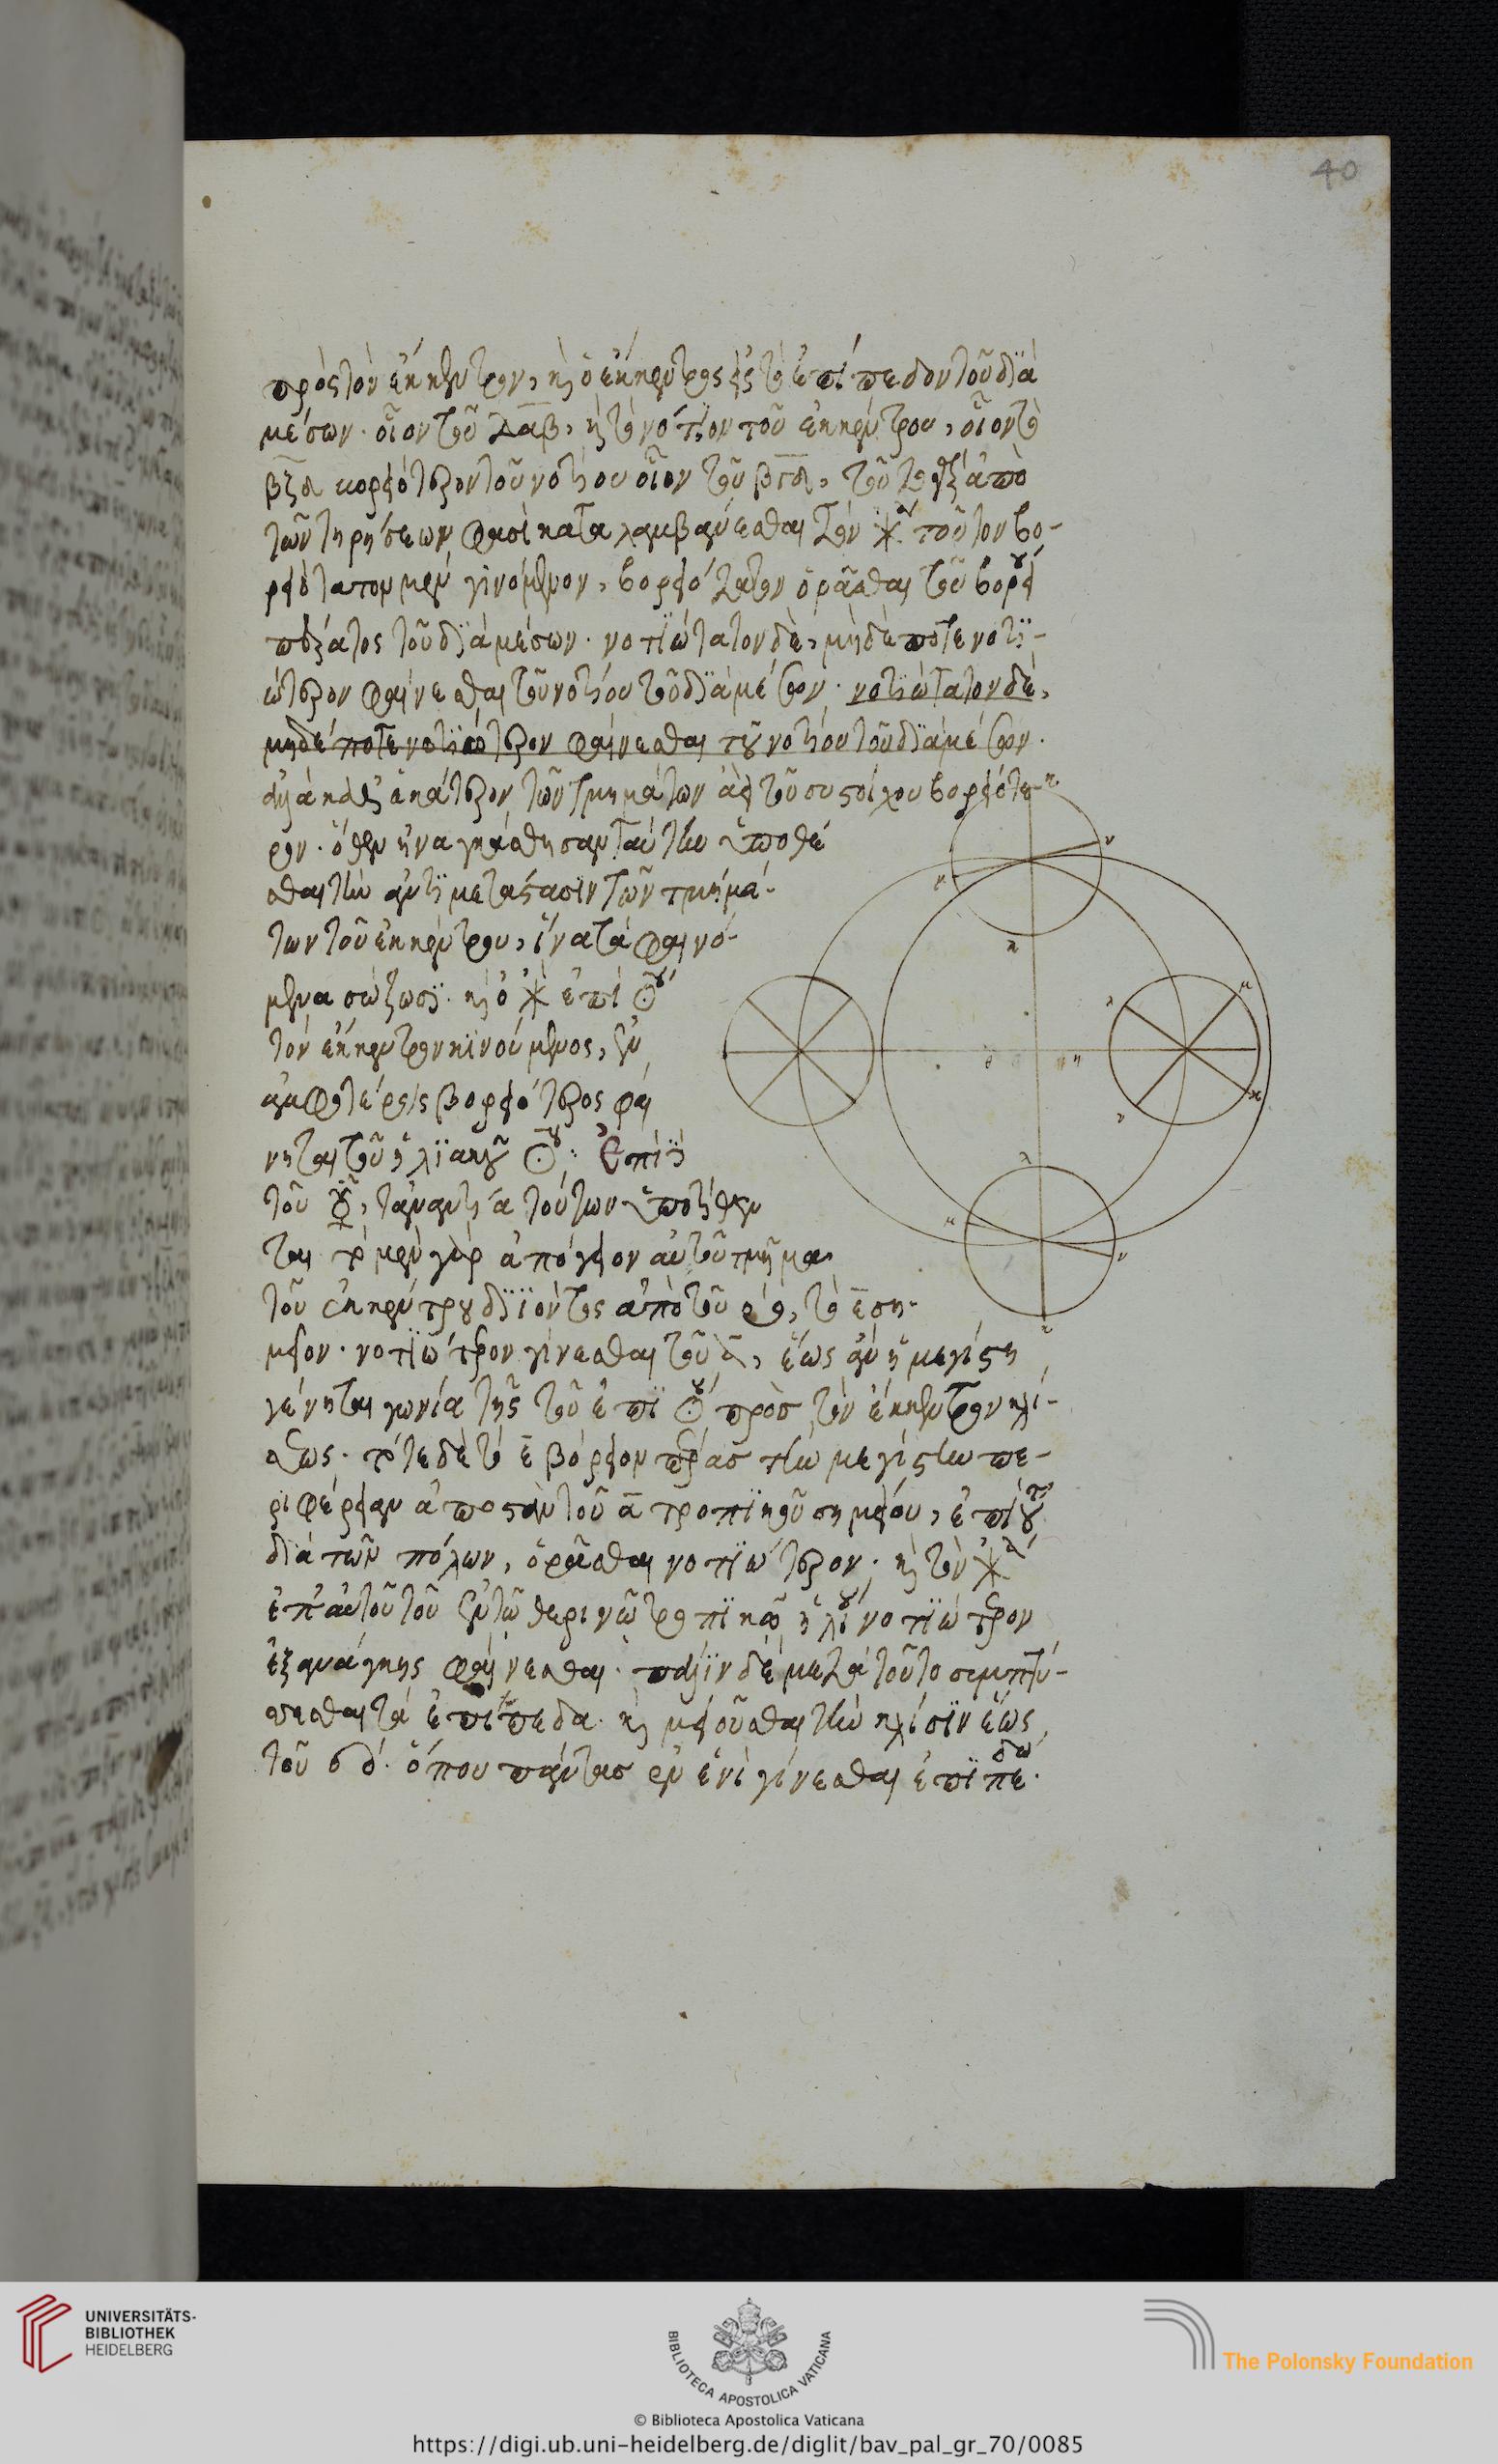 40
πρὸς τὸν ἔκκεντρον, καὶ ὁ ἔκκεντρος εἰς τὸ ἐπίπεδον τοῦ διὰ
μέσων. οἷον τοῦ καὶ τὸ νότιον τοῦ ἐκκέντρου, οἷον τὸ
τοῦ νοτίου οἷον τοῦ
τῶν τηρήσεων φασὶ καταλαμβάνεσθαι τὸν τοῦτον βο-
ρειότατον μὲν γινόμενον, βορειότατον ὁρᾶσθαι τοῦ βορείου
πέρατος τοῦ διὰ μέσων. νοτιώτατον δὲ, μηδέποτε νοτι-
ώτερον φαίνεσθαι τοῦ νοτίου τοῦ διὰ μέσων. νοτιώτατον δὲ,
μηδέποτε νοτιώτερον φαίνεσθαι τοῦ νοτίου τοῦ διὰ μέσων.
ἑκάτερον τῶν τμημάτων ἀεὶ τοῦ συστοίχου βορειότε-
ρον. ὅθεν ἠναγκάσθησαν ταύτην ὑποθέ
σθαι τὴν ἀντιμετάστασιν τῶν τμημά-
των τοῦ ἐκκέντρου, ἵνα τὰ φαινό-
μενα σώζωσι. καὶ ὁ ἐπὶ
τὸν ἔκκεντρον κινούμενος, ἐν
ἀμφοτέροις βορειότερος φαί
νηται τοῦ ἡλιακοῦ Ἐπὶ δὲ
τοῦ ☿, τἀναντία τούτων ὑποτίθεν
ται τὸ μὲν γὰρ ἀπόγειον αὐτοῦ τμῆμα
τοῦ ἐκκέντρου διϊόντος ἀπὸ τοῦ τὸ ε ση-
μεῖον. νοτιώτερον γίνεσθαι τοῦ α, ἕως ἂν ἡ μεγίστη
γένηται γωνία τῆς τοῦ ἐπι πρὸς τὸν ἔκκεντρον κλί-
σεως. τότε δὲ τὸ ε βόρειον πέρας τὴν μεγίστην πε-
ριφέρειαν ἀποστὰν τοῦ α τροπικοῦ σημείου, ἐπὶ τοῦ
διὰ τῶν πόλων, ὁρᾶσθαι νοτιώτερον. καὶ τὸν
ἐπ' αὐτοῦ τοῦ ἐν τῷ θερινῷ τροπικῷ ἡλίου νοτιώτερον
ἐξ ἀνάγκης φαίνεσθαι. πάλιν δὲ μετὰ τοῦτο συμπτύ-
σσεσθαι τὰ ἐπίπεδα. καὶ μειοῦσθαι τὴν κλίσιν ἕως
τοῦ ὅπου πάντας ἐν ἑνὶ γίνεσθαι ἐπιπέδῳ.
UNIVERSITÄTS-
BIBLIOTHEK
HEIDELBERG
BIBLIOTECA APOSTOLICA VATICANA
The Polonsky Foundation
© Biblioteca Apostolica Vaticana
https://digi.ub.uni-heidelberg.de/diglit/bav_pal_gr_70/0085